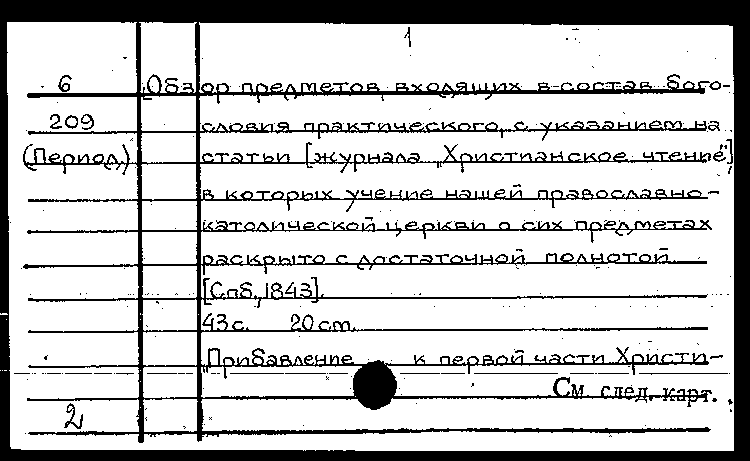 1
6 [Обзор предметов, входящих в состав бого-
209 словия практического, с указанием на
(Период.) статьи [журнала „Христианское чтение"],
в которых учение нашей православно-
католической церкви о сих предметах
раскрыто с достаточной полнотой.
[Спб., 1843].
43 с. 20 см.
„Прибавление к первой части Христи-
См. след. карт.
2